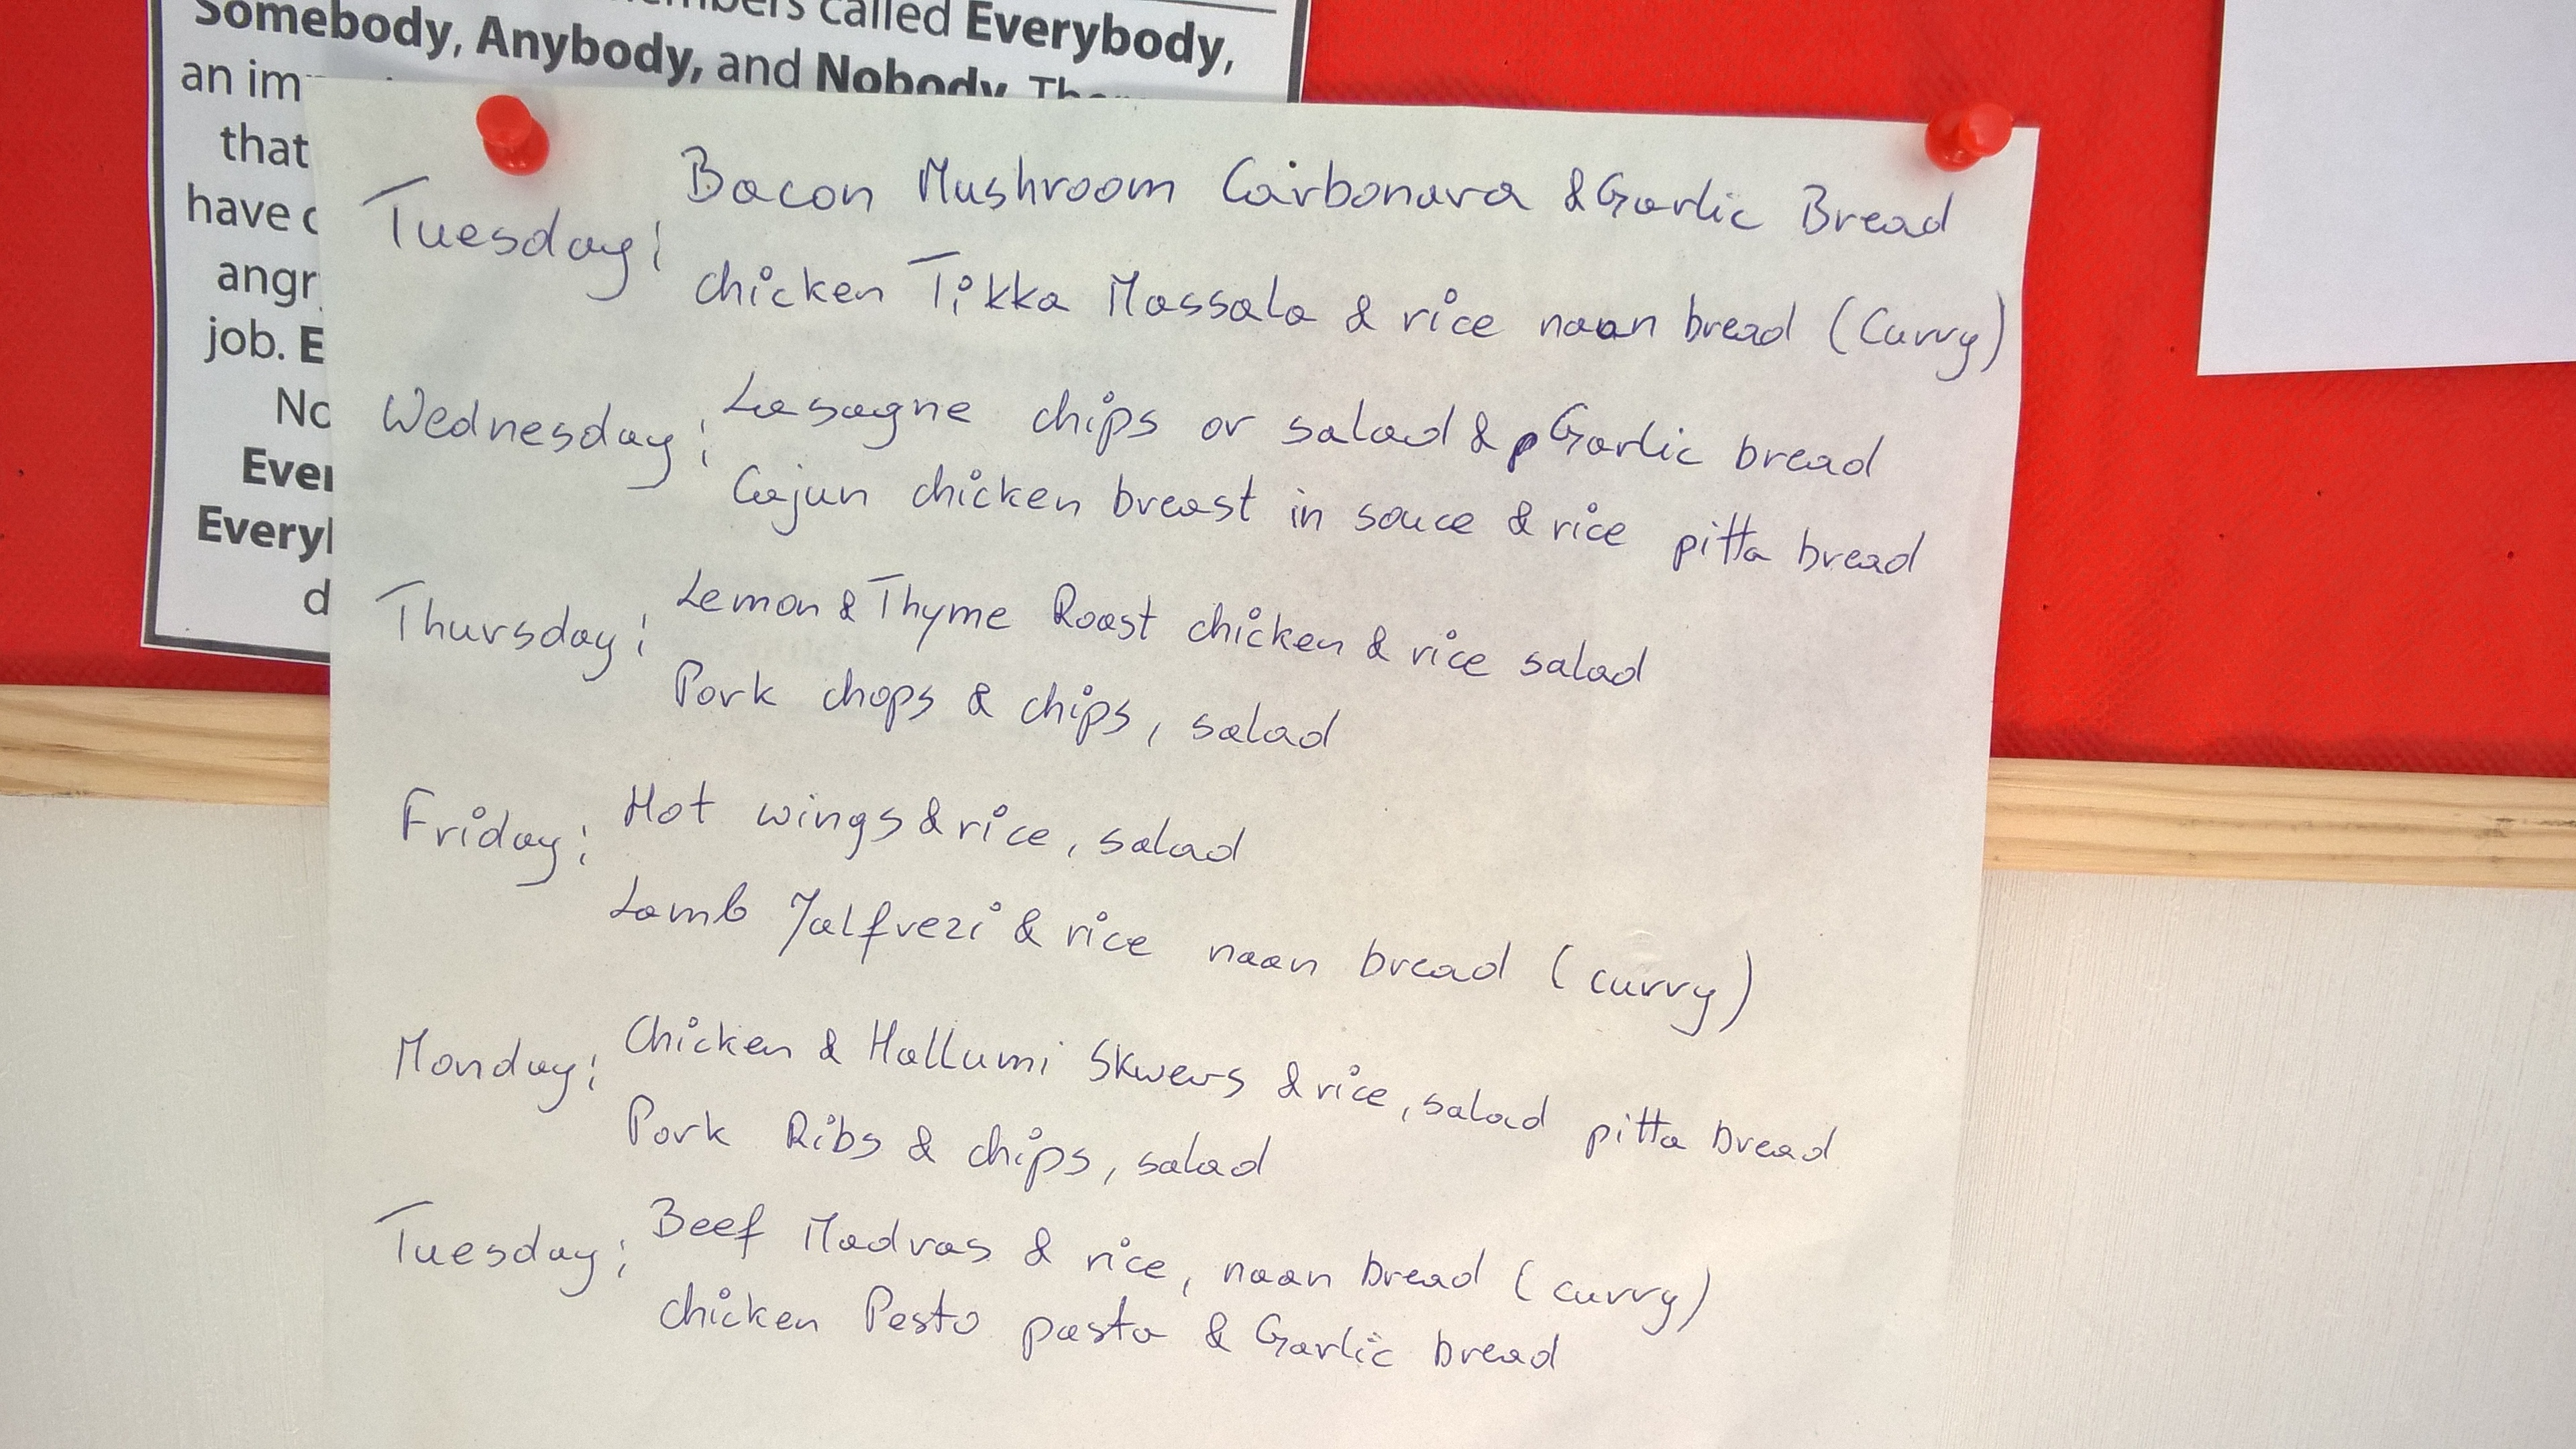 members called Everybody,
Somebody, Anybody, and Nobody. There
an im
that
have
angr
job. E
No
Ever
Every
d
Bacon Mushroom Carbonara & Garlic Bread
Tuesday:
chicken Tikka Massala & rice naan bread (Curry)
Wednesday: Lasagne chips or salad & Garlic bread
Cajun chicken breast in souce & rice pitta bread
Thursday: Lemon & Thyme Roast chicken & rice salad
Pork chops & chips, salad
Friday: Hot wings & rice, salad
Lamb Jalfrezi & rice naan bread (curry)
Monday: Chicken & Hallumi Skwers & rice, salad pitta bread
Pork Ribs & chips, salad
Tuesday: Beef Madras & rice, naan bread (curry)
chicken Pesto pasta & Garlic bread